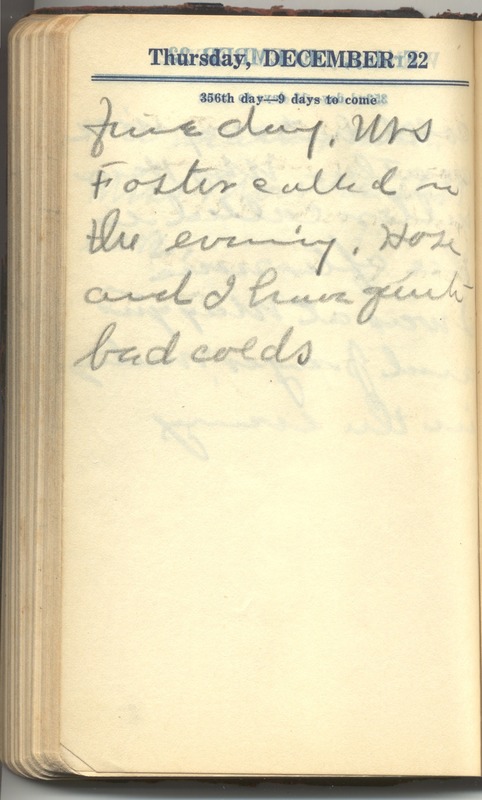 Thursday, DECEMBER 22
356th day—9 days to come
Fine day. Mrs
Foster called in
the evening. Hose
and I have quite
bad colds